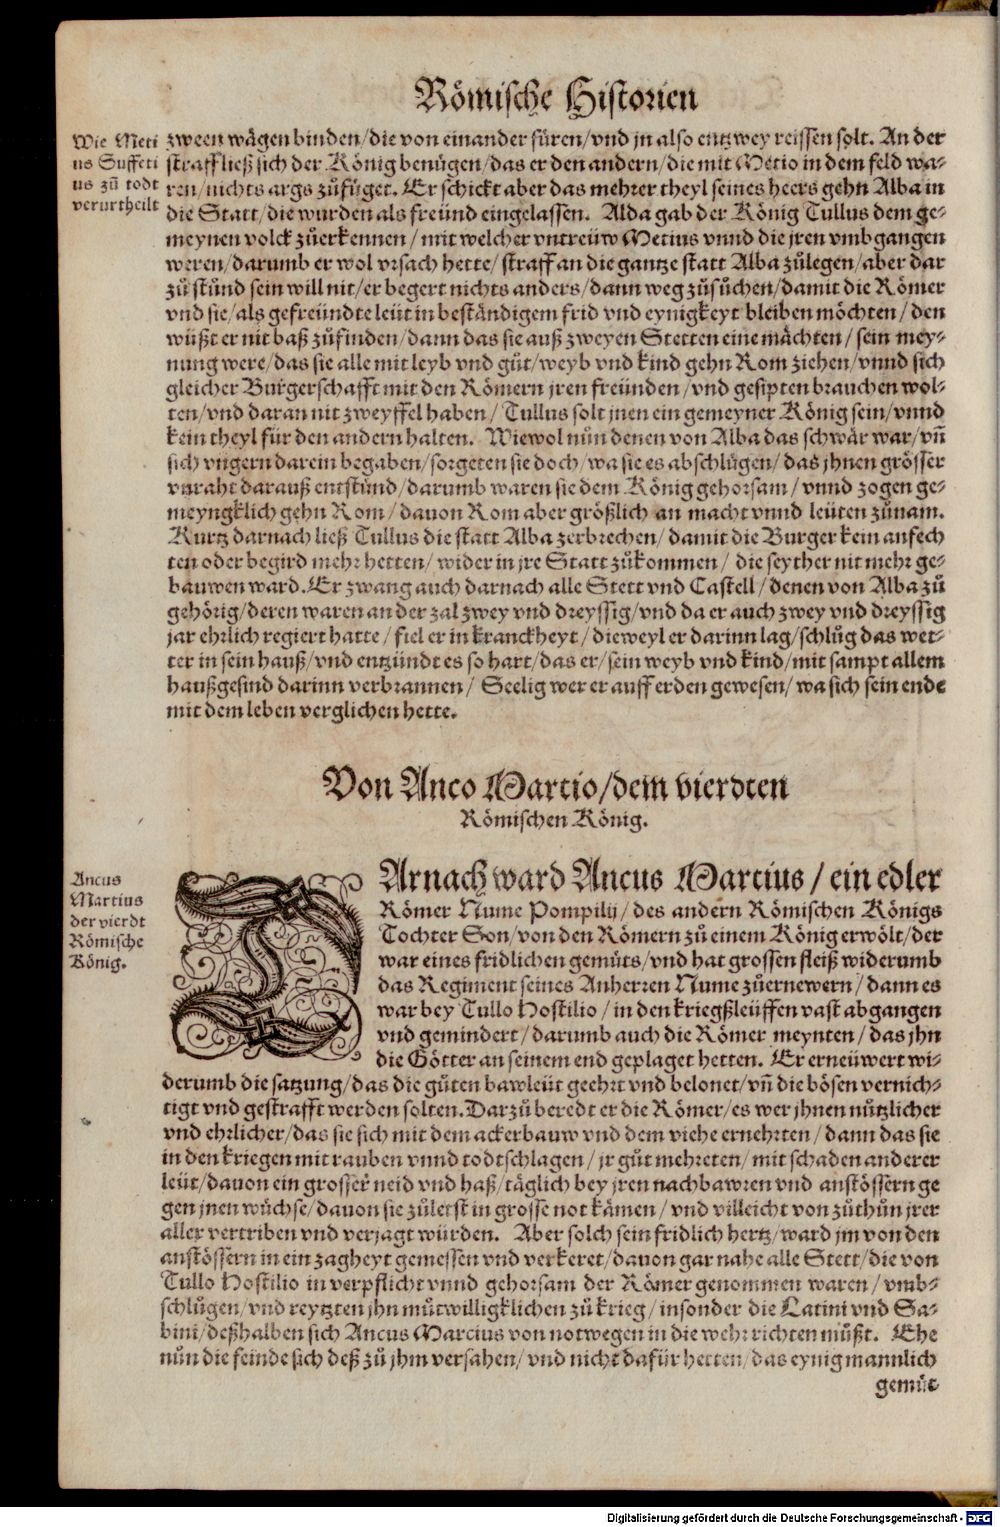 Römische Historien
Wie Meti
us Suffeti
us zů todt
verurtheilt
zween wägen binden/die von einander fůren/vnd jn also entzwey reissen solt. An der
straff ließ sich der König benügen/das er den andern/die mit Metio in dem feld wa-
ren/nichts args zůfüget. Er schickt aber das mehrer theyl seines heers gehn Alba in
die Statt/die wurden als freünd eingelassen. Alda gab der König Tullus dem ge-
meynen volck zůerkennen/mit welcher vntreüw Metius vnnd die jren vmbgangen
weren/darumb er wol vrsach hette/straff an die gantze statt Alba zůlegen/aber dar
zů stünd sein will nit/er begert nichts anders/dann weg zůsůchen/damit die Römer
vnd sie/als gefreündte leüt in beständigem frid vnd eynigkeyt bleiben möchten/den
wüßt er nit baß zůfinden/dann das sie auß zweyen Stetten eine mächten/sein mey-
nung were/das sie alle mit leyb vnd gůt/weyb vnd kind gehn Rom ziehen/vnnd sich
gleicher Burgerschafft mit den Römern jren freünden/vnd gesipten brauchen wol-
ten/vnd daran nit zweyffel haben/Tullus solt jnen ein gemeyner König sein/vnnd
kein theyl für den andern halten. Wiewol nůn denen von Alba das schwär war/vñ
sich vngern darein begaben/sorgeten sie doch/wa sie es abschlůgen/das jhnen grösser
vnraht darauß entstünd/darumb waren sie dem König gehorsam/vnnd zogen ge-
meyngklich gehn Rom/dauon Rom aber größlich an macht vnnd leüten zůnam.
Kurtz darnach ließ Tullus die statt Alba zerbrechen/damit die Burger kein anfech
ten oder begird mehr hetten/wider in jre Statt zůkommen/die seyther nit mehr ge-
bauwen ward. Er zwang auch darnach alle Stett vnd Castell/denen von Alba zů
gehörig/deren waren an der zal zwey vnd dreyssig/vnd da er auch zwey vnd dreyssig
jar ehrlich regiert hatte/fiel er in kranckheyt/dieweyl er darinn lag/schlůg das wet-
ter in sein hauß/vnd entzündt es so hart/das er/sein weyb vnd kind/mit sampt allem
haußgesind darinn verbrannen/Seelig wer er auff erden gewesen/wa sich sein ende
mit dem leben verglichen hette.
Von Anco Martio/dem vierdten
Römischen König.
Ancus
Martius
der vierdt
Römische
König.
DArnach ward Ancus Martius/ein edler
Römer Nume Pompilij/des andern Römischen Königs
Tochter Son/von den Römern zů einem König erwölt/der
war eines fridlichen gemůts/vnd hat grossen fleiß widerumb
das Regiment seines Anherren Nume zůernewern/dann es
war bey Tullo Hostilio/in den kriegßleüffen vast abgangen
vnd gemindert/darumb auch die Römer meynten/das jhn
die Götter an seinem end geplaget hetten. Er erneüwert wi-
derumb die satzung/das die gůten bawleüt geehrt vnd belonet/vñ die bösen vernich-
tigt vnd gestrafft werden solten. Darzů beredt er die Römer/es wer jhnen nützlicher
vnd ehrlicher/das sie sich mit dem ackerbauw vnd dem viehe ernehrten/dann das sie
in den kriegen mit rauben vnnd todtschlagen/jr gůt mehreten/mit schaden anderer
leüt/dauon ein grosser neid vnd haß/täglich bey jren nachbawren vnd anstössern ge
gen jnen wüchse/dauon sie zůletst in grosse not kämen/vnd villeicht von zůthůn jrer
aller vertriben vnd verjagt würden. Aber solch sein fridlich hertz/ward jm von den
anstössern in ein zagheyt gemessen vnd verkeret/dauon gar nahe alle Stett/die von
Tullo Hostilio in verpflicht vnnd gehorsam der Römer genommen waren/vmb-
schlůgen/vnd reytzten jhn můtwilligklichen zů krieg/insonder die Latini vnd Sa-
bini/deßhalben sich Ancus Marcius von notwegen in die wehr richten můßt. Ehe
nůn die feinde sich deß zů jhm versahen/vnd nicht dafür hetten/das eynig mannlich
gemůt
Digitalisierung gefördert durch die Deutsche Forschungsgemeinschaft - DFG